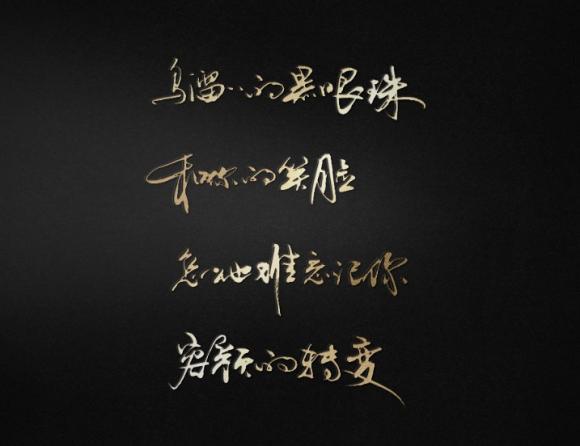 乌溜溜的黑眼珠
和你的笑脸
怎么也难忘记你
容颜的转变